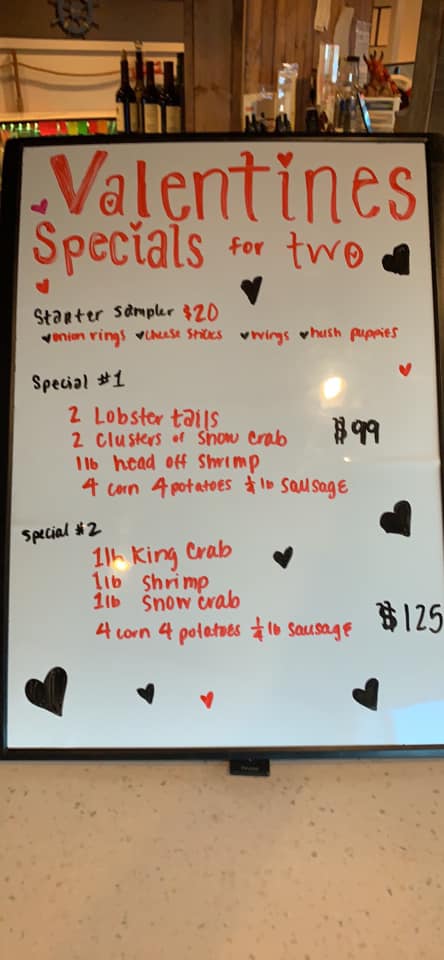 Valentines
Specials for two
Starter Sampler $20
onion rings cheese sticks wings hush puppies
Special #1
2 Lobster tails
2 Clusters of Snow Crab $99
1lb head off Shrimp
4 corn 4 potatoes ¼ lb sausage
Special #2
1lb King Crab
1lb Shrimp
1lb Snow crab
4 corn 4 potatoes ¼ lb sausage $125